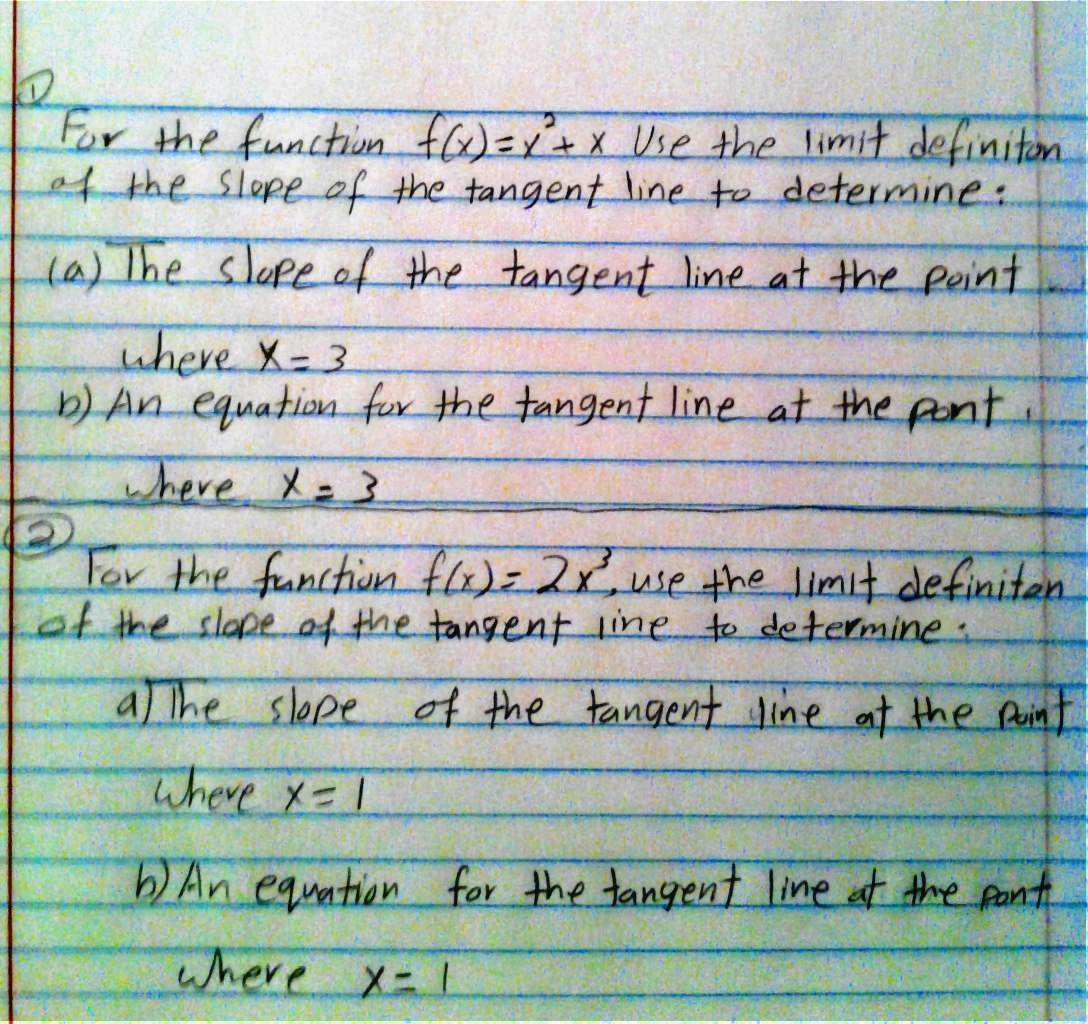 ①
For the function f(x)=x²+x Use the limit definiton
of the slope of the tangent line to determine:
(a) The slope of the tangent line at the point
where x=3
b) An equation for the tangent line at the pont
where x=3
②
For the function f(x)=2x³, use the limit definiton
of the slope of the tangent line to determine:
a) The slope of the tangent line at the point
where x=1
b) An equation for the tangent line at the pont
where x=1